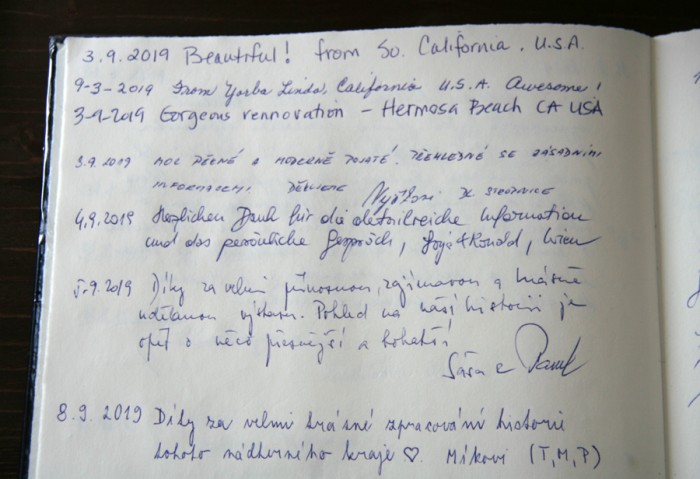 3.9.2019 Beautiful! from So. California. U.S.A.
9-3-2019 From Yorba Linda, California U.S.A. Awesome!
3-9-2019 Gorgeous rennovation – Hermosa Beach CA USA
3.9.2019 MOC PĚKNÉ A MODERNĚ POJATÉ. PŘEHLEDNÉ SE ZÁSADNÍMI
INFORMACEMI DĚKUJEME
4.9.2019 Herzlichen Dank für die detailreiche Information
und das persönliche Gespräch, & Ronald, Wien
5.9.2019 Díky za velmi přínosnou, zajímavou a krásně
udělanou výstavu. Pohled na naší historii je
opět o něco přesnější a bohatší!
Sáša a Pavel
8.9.2019 Díky za velmi krásné zpracování historie
tohoto nádherného kraje ♡. Míkovi (T,M,P)